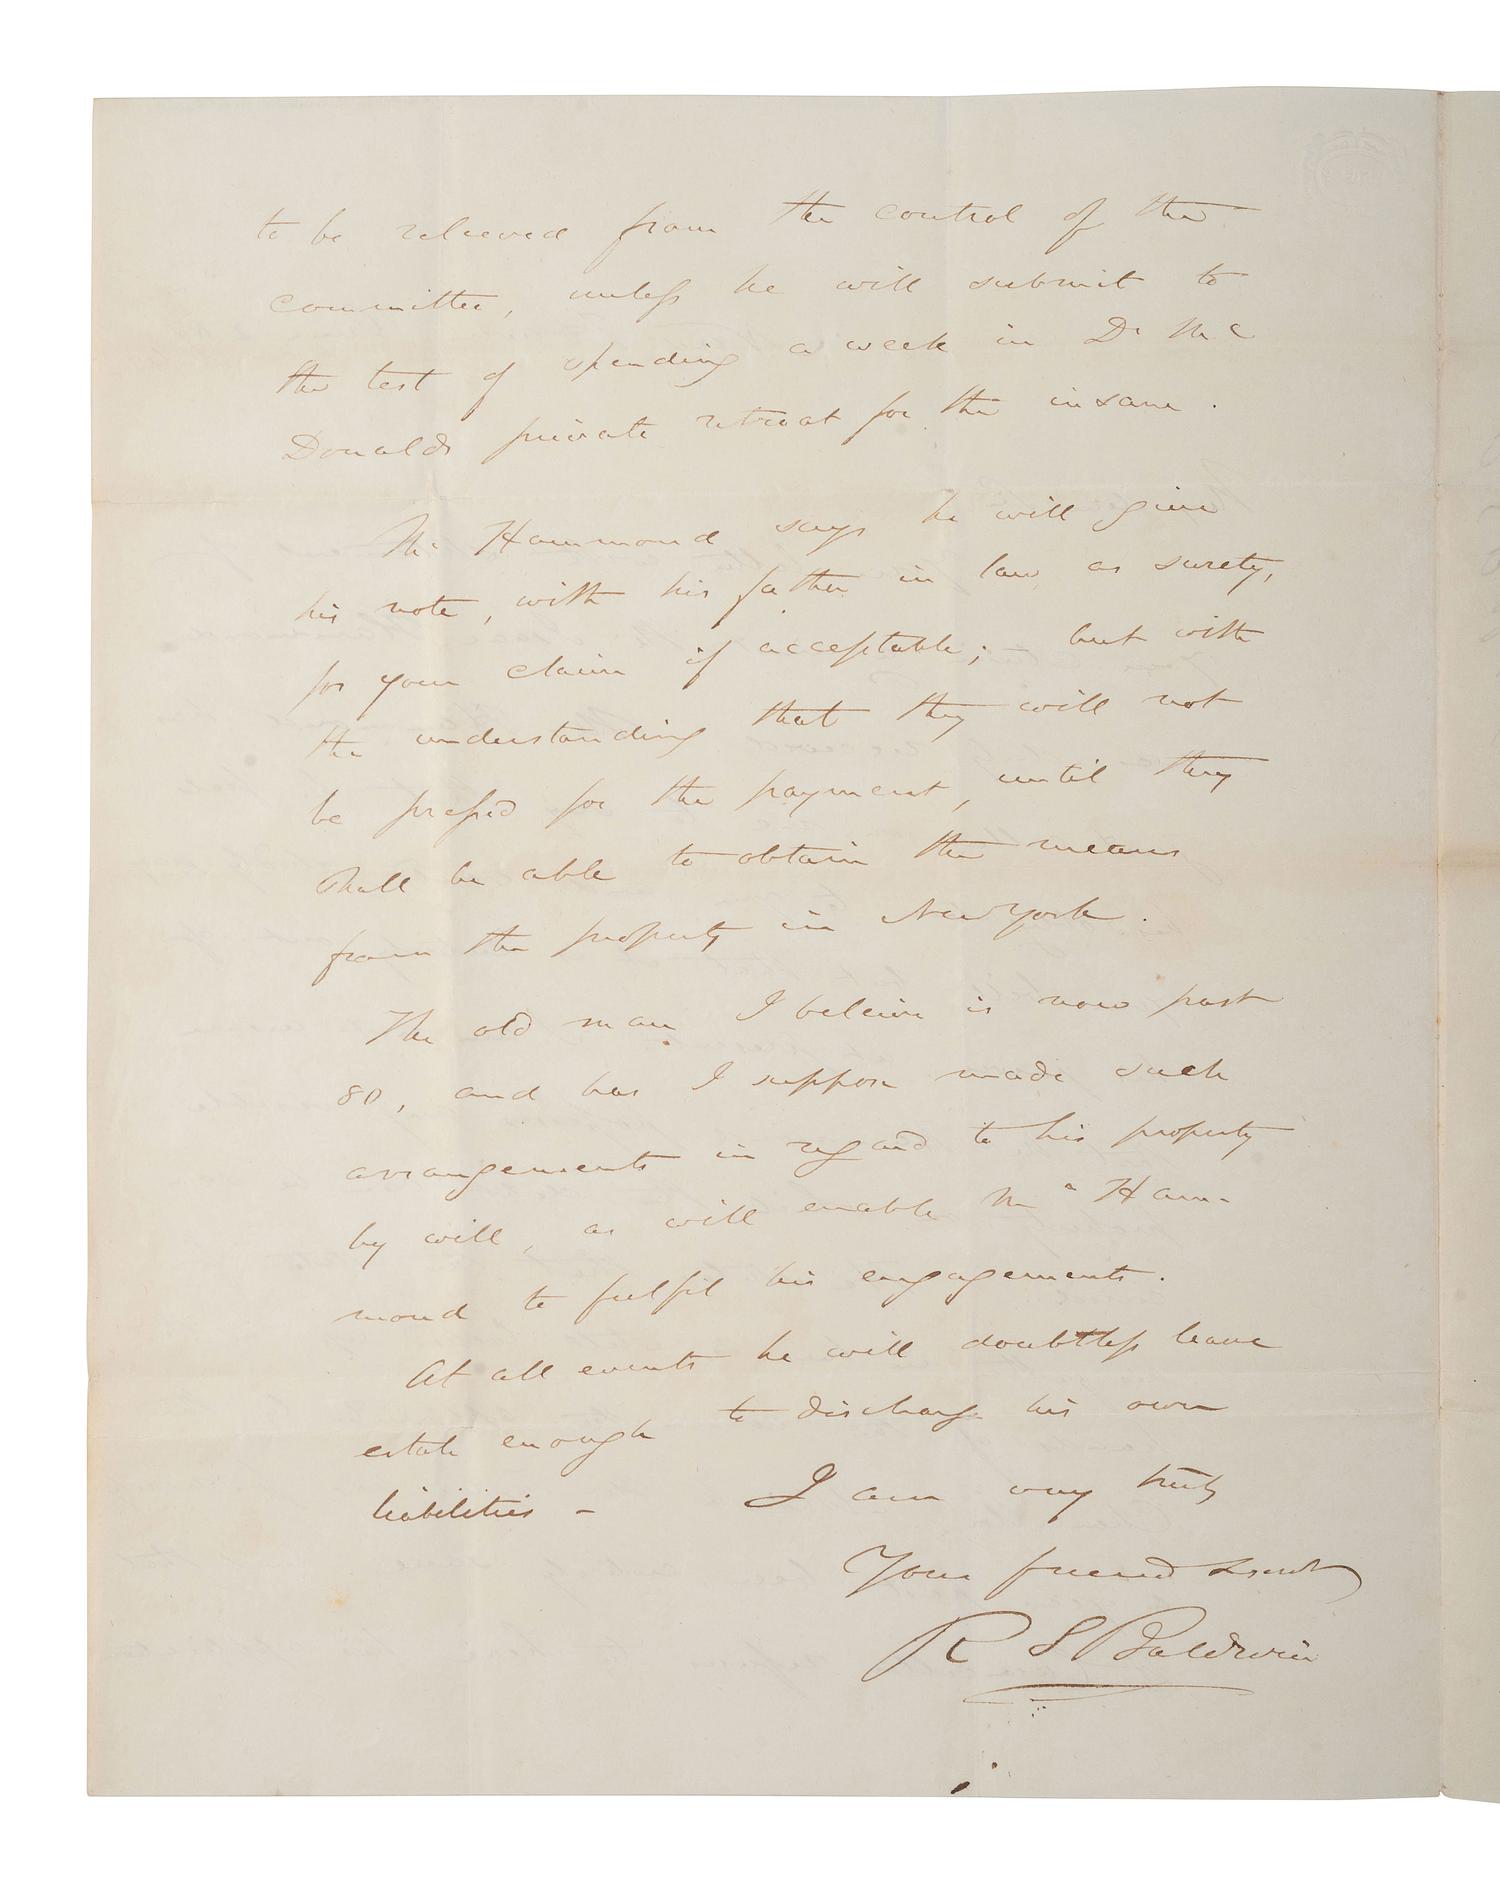 to be relieved from the control of the
committee, unless he will submit to
the test of spending a week in Dr Mc
Donalds private retreat for the insane.
Mr Hammond says he will give
his note, with his father in law as surety,
for your claim if acceptable; - but with
the understanding that they will not
be pressd for the payment, until they
shall be able to obtain the means
from the property in New York.
The old man I beleive is now past
80, and has I suppose made such
arrangements in regard to his property
by will, as will enable Mr Ham-
mond to fulfil his engagements.
At all events he will doubtless leave
estate enough to discharge his own
liabilities -
I am very truly
Your friend & servt
R S Baldwin